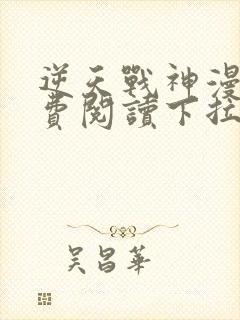 逆天戰神漫
費閱讀下拉
吳昌華